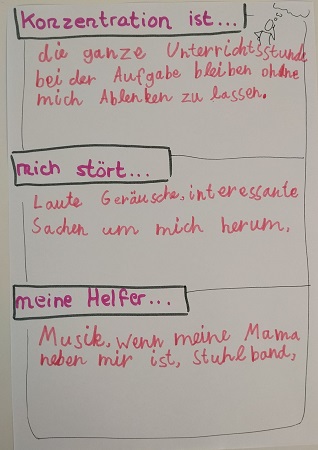 Konzentration ist...
die ganze Unterrichtsstunde
bei der Aufgabe bleiben ohne
mich Ablenken zu lassen.
mich stört...
Laute Geräusche, interessante
Sachen um mich herum,
meine Helfer...
Musik, wenn meine Mama
neben mir ist, Stuhlband,